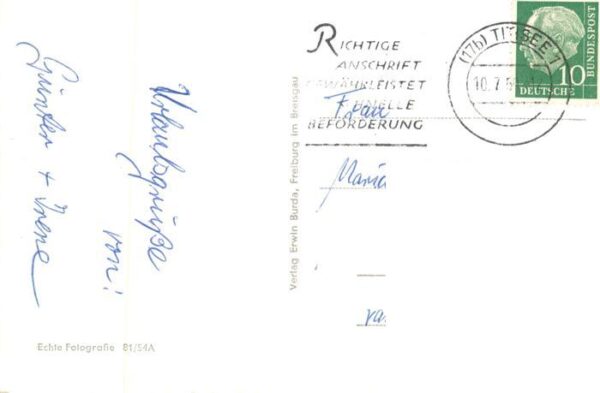 Urlaubsgrüße
von!
Günter + Irene
Echte Fotografie 81/54A
Verlag Erwin Burda, Freiburg im Breisgau
RICHTIGE
ANSCHRIFT
GEWÄHRLEISTET
SCHNELLE
BEFÖRDERUNG
(17b) TITISEE
10.7.5
10
DEUTSCHE
BUNDESPOST
Frau
Maria